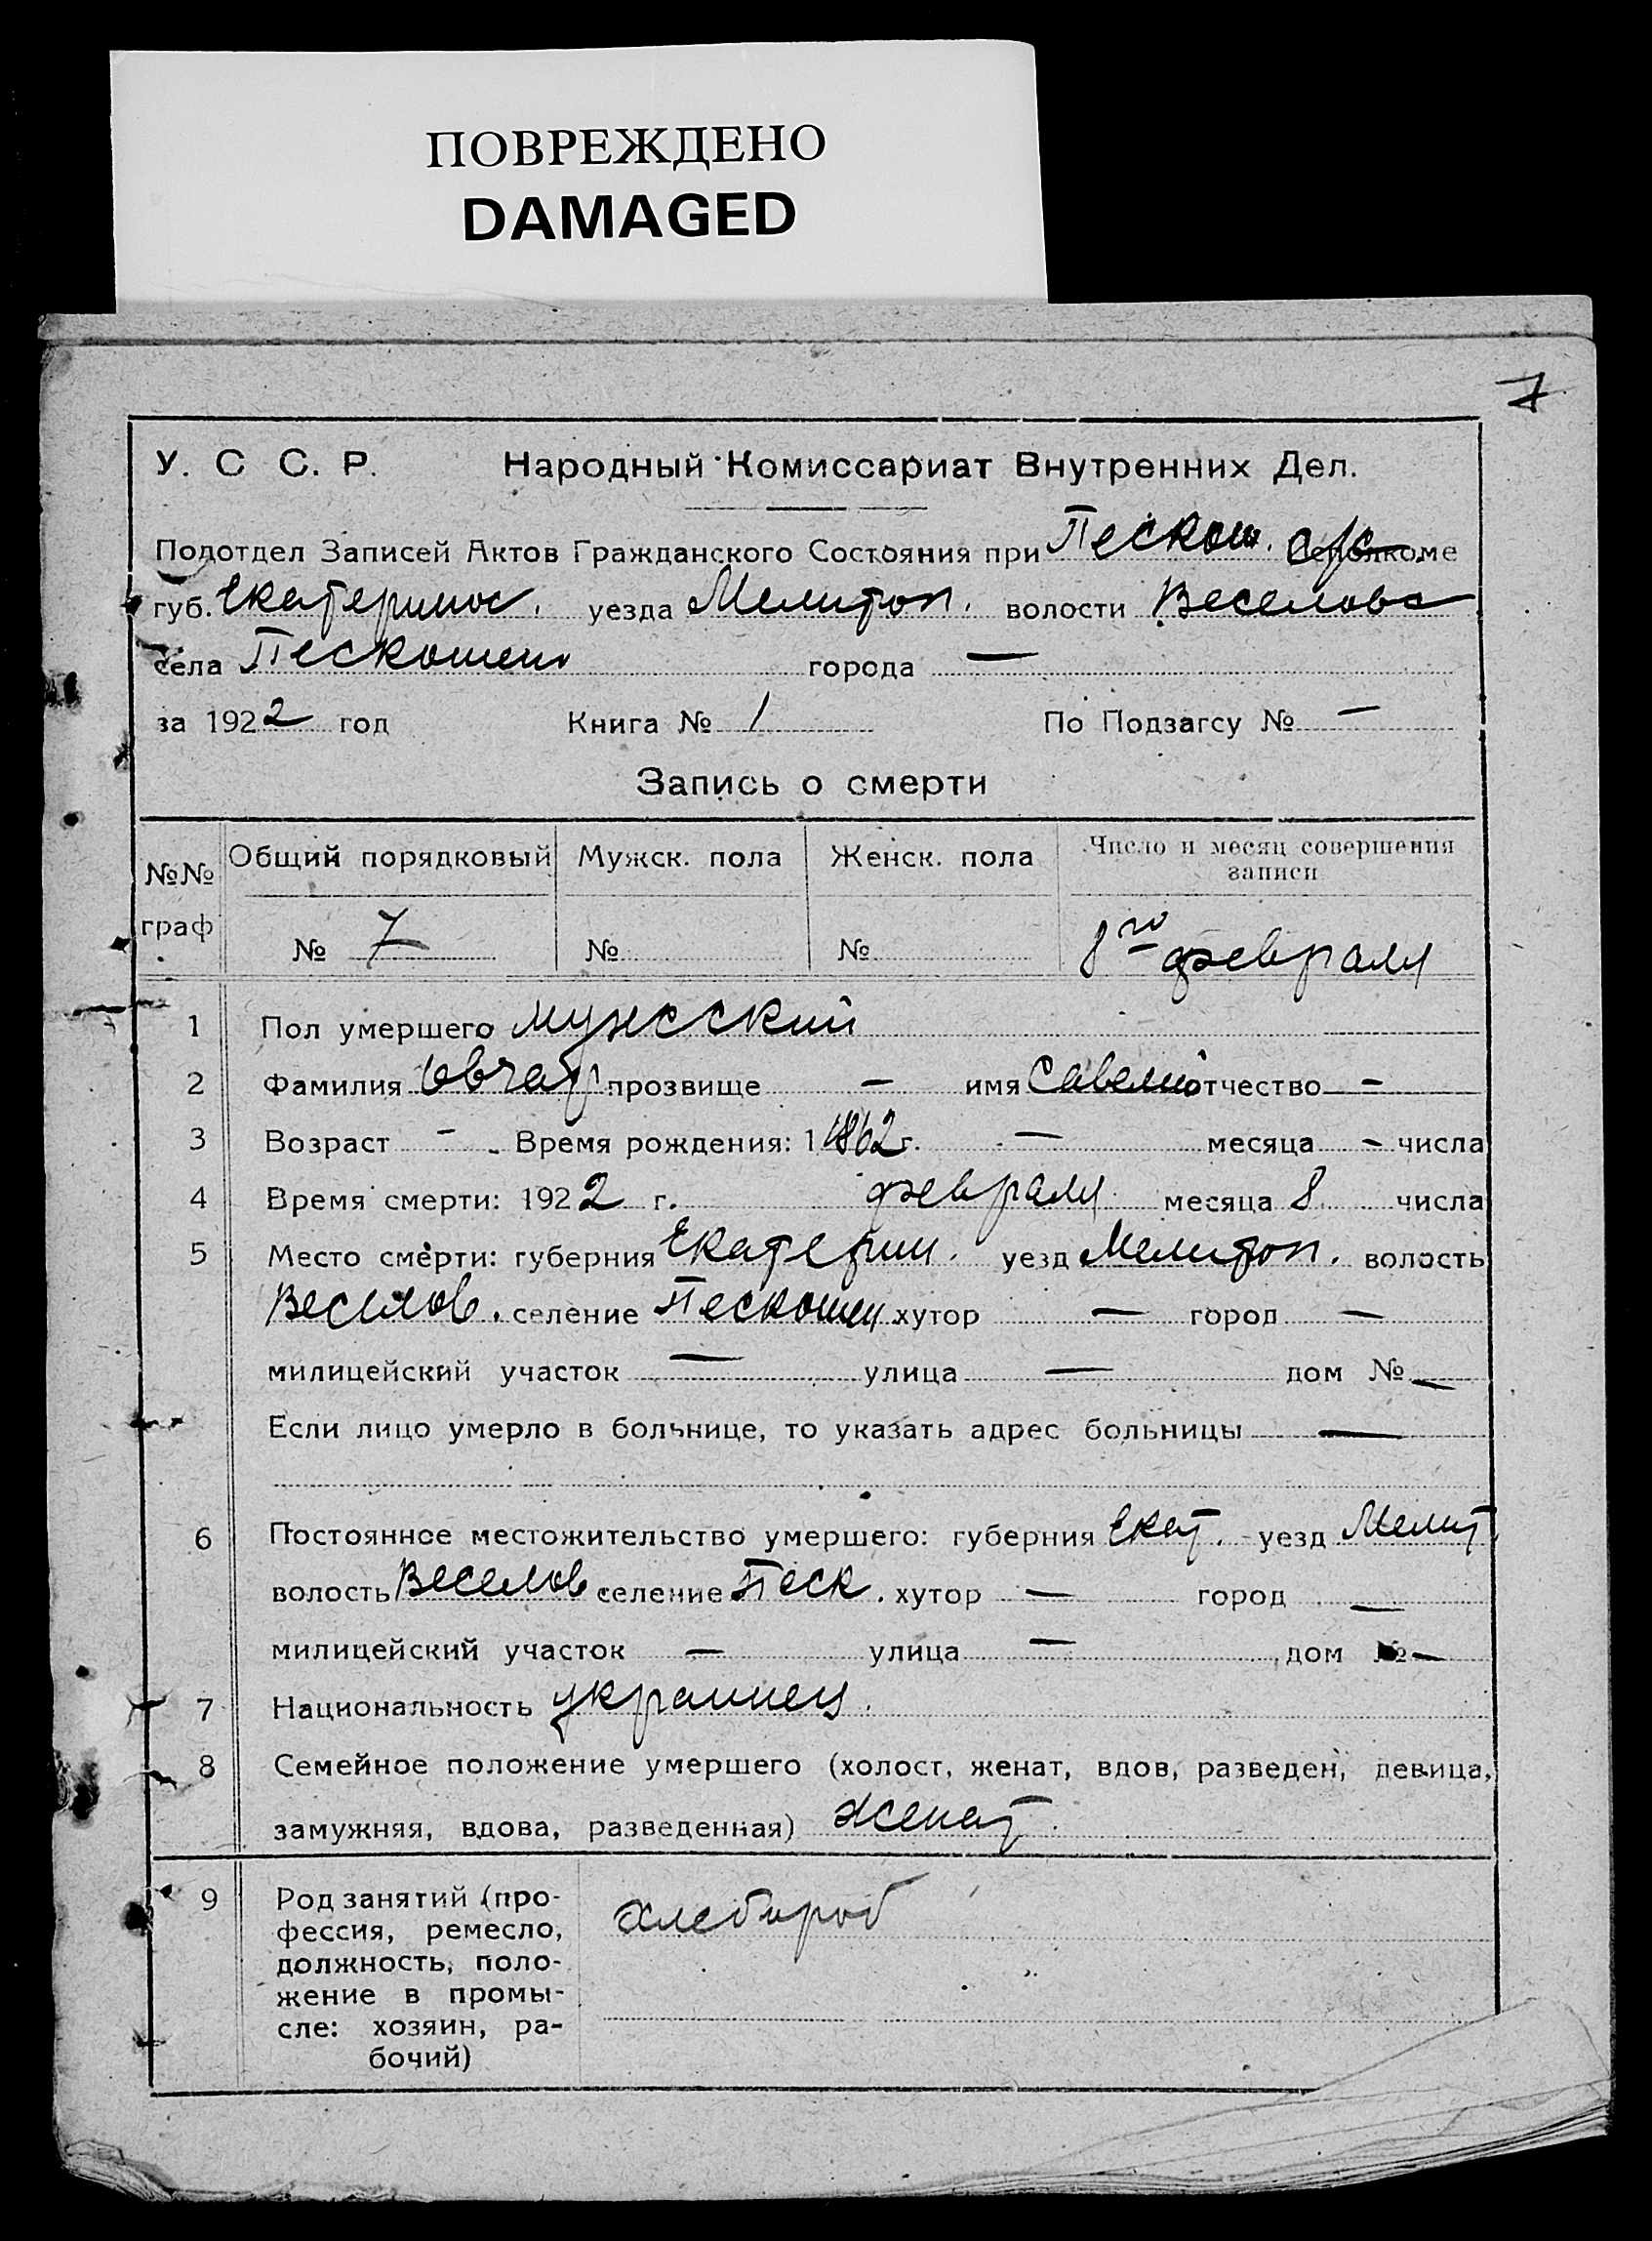 ПОВРЕЖДЕНО
DAMAGED
7
У. С С. Р. Народный Комиссариат Внутренних Дел.
Подотдел Записей Актов Гражданского Состояния при Пескош.
губ. Екатеринос. уезда Мелитоп. волости Веселовс
села Пескошено города —
за 1922 год Книга № 1 По Подзагсу № —
Запись о смерти
№№ граф Общий порядковый Мужск. пола Женск. пола Число и месяц совершения записи
№ 7 № № 8го февраля
1 Пол умершего мужсский
2 Фамилия Овчар прозвище — имя Савелий отчество —
3 Возраст — Время рождения: 1862 г. — месяца — числа
4 Время смерти: 1922 г. февраля месяца 8 числа
5 Место смерти: губерния Екатерин. уезд Мелитоп. волость
Веселов. селение Пескошен хутор — город —
милицейский участок — улица — дом № —
Если лицо умерло в больнице, то указать адрес больницы —
6 Постоянное местожительство умершего: губерния Екат. уезд Мелит.
волость Веселов селение Песк. хутор — город —
милицейский участок — улица — дом № —
7 Национальность украинец.
8 Семейное положение умершего (холост, женат, вдов, разведен, девица,
замужняя, вдова, разведенная) женат.
9 Род занятий (про- хлебороб
фессия, ремесло,
должность, поло-
жение в промы-
сле: хозяин, ра-
бочий)